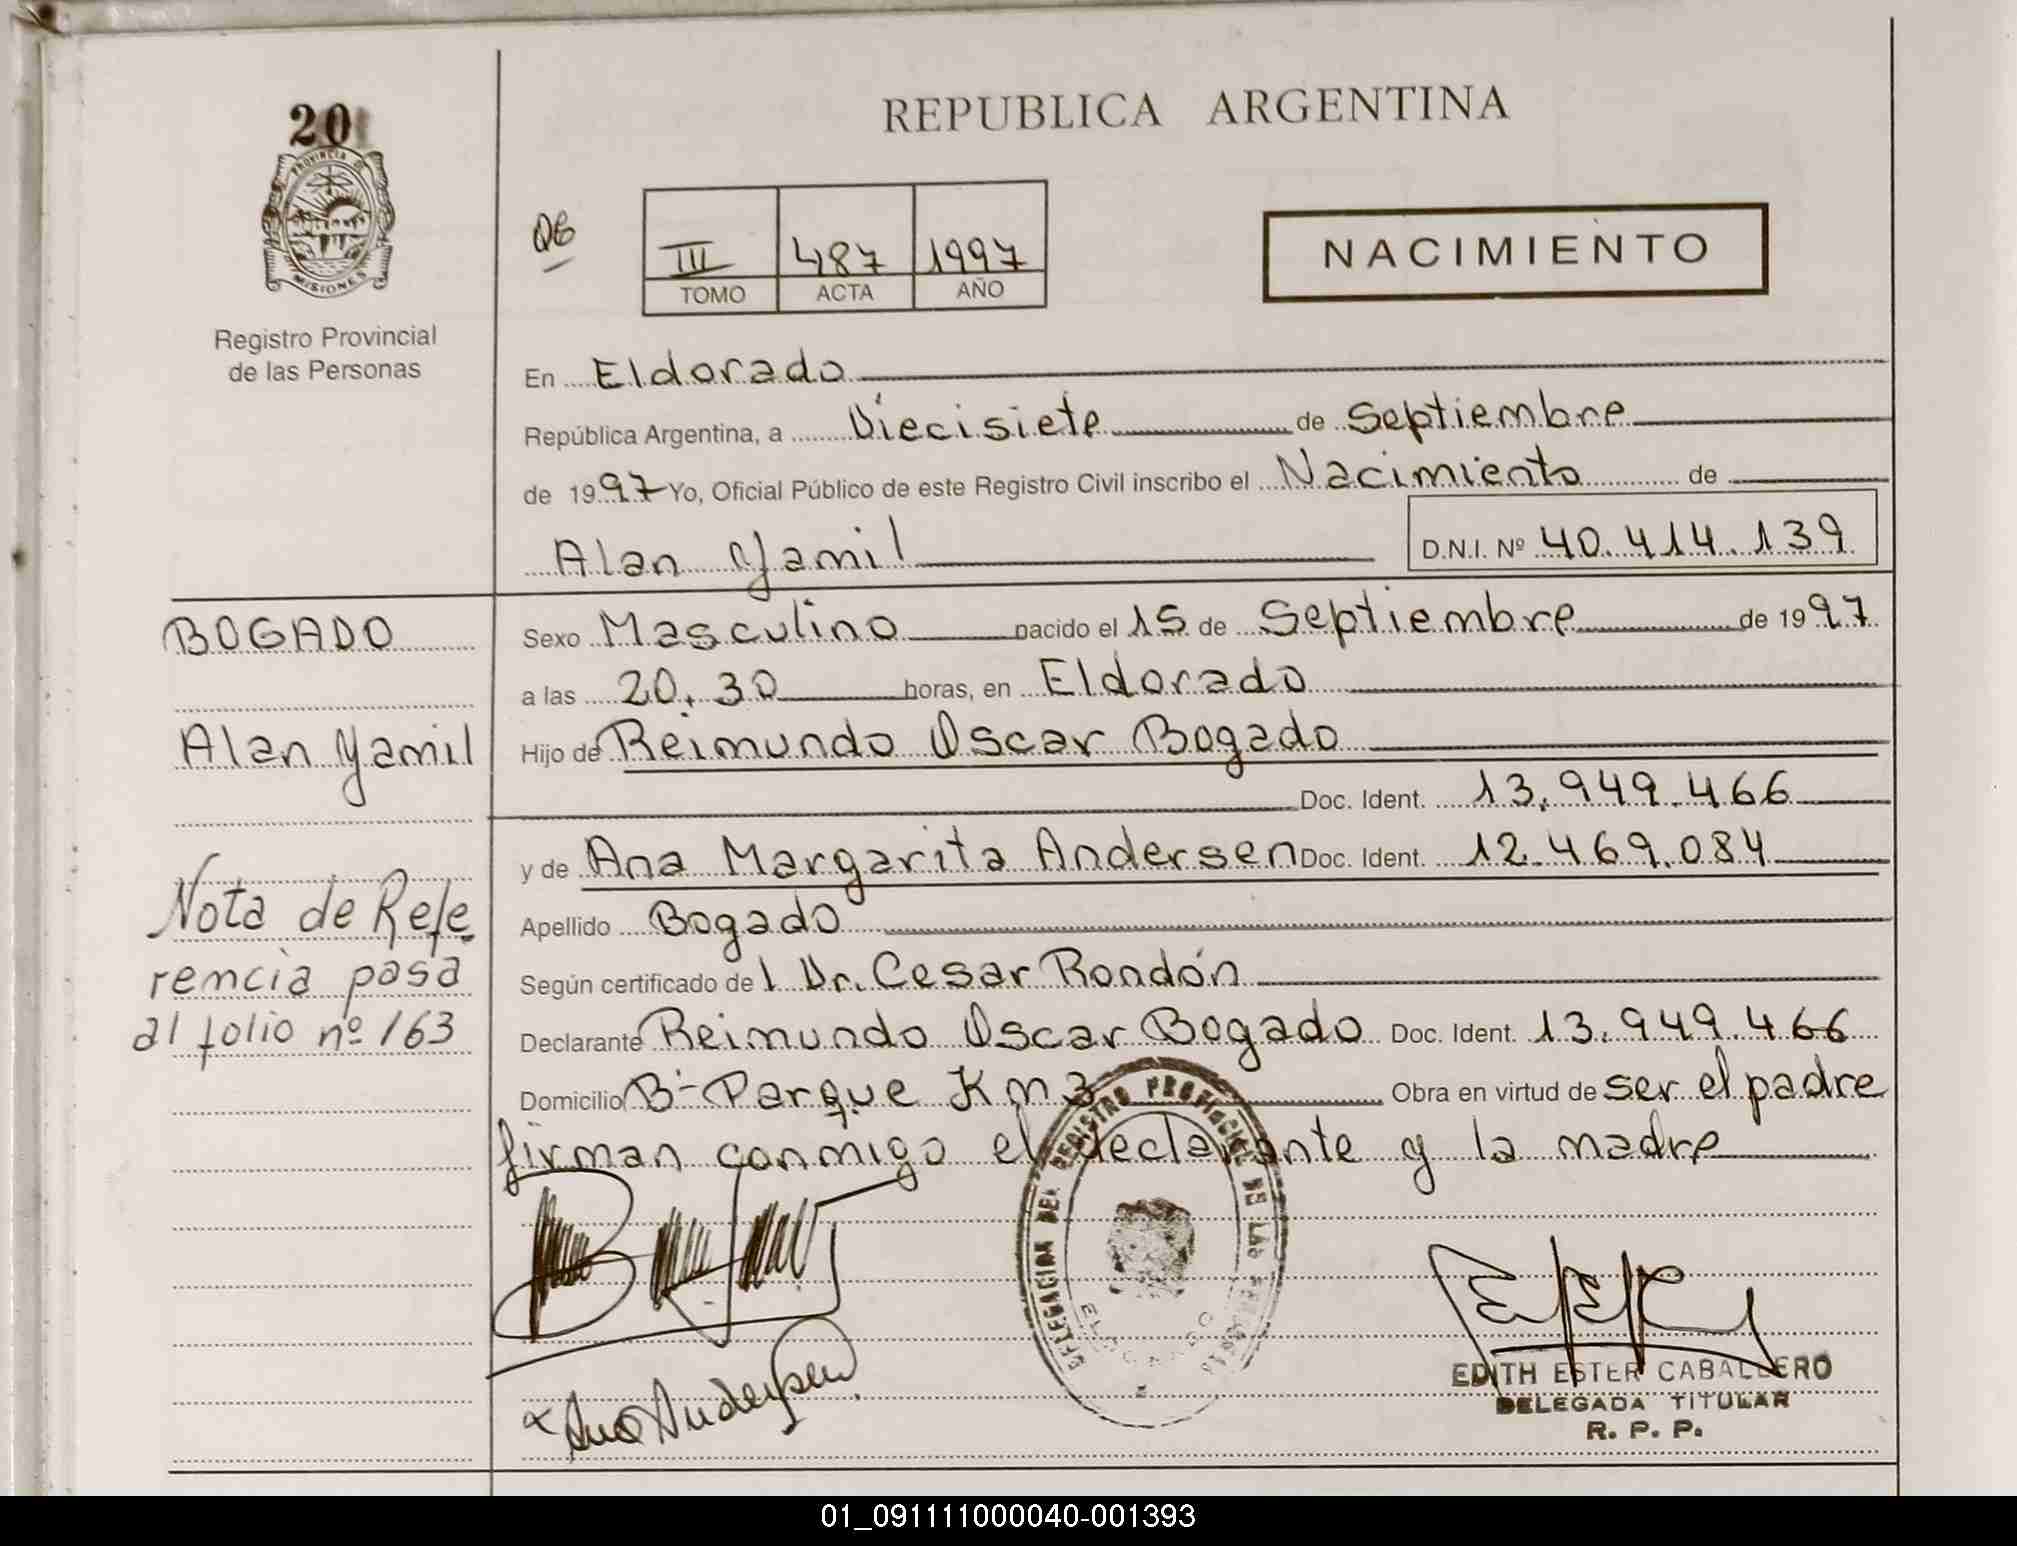 20
PROVINCIA DE
MISIONES
Registro Provincial
de las Personas
REPUBLICA ARGENTINA
III 487 1997
TOMO ACTA AÑO
NACIMIENTO
En Eldorado
República Argentina, a Diecisiete de Septiembre
de 1997 Yo, Oficial Público de este Registro Civil inscribo el Nacimiento de
Alan Yamil D.N.I. Nº 40.414.139
BOGADO
Alan Yamil
Nota de Refe
rencia pasa
al folio nº 163
Sexo Masculino nacido el 15 de Septiembre de 1997
a las 20.30 horas, en Eldorado
Hijo de Reimundo Oscar Bogado
Doc. Ident. 13.949.466
y de Ana Margarita Andersen Doc. Ident. 12.469.084
Apellido Bogado
Según certificado de l Dr. Cesar Rondón
Declarante Reimundo Oscar Bogado Doc. Ident. 13.949.466
Domicilio Bº Parque Km 3 Obra en virtud de ser el padre
firman conmigo el declarante y la madre
DELEGACION DEL REGISTRO PROVINCIAL DE LAS PERSONAS
ELDORADO
Ana Andersen
EDITH ESTER CABALLERO
DELEGADA TITULAR
R. P. P.
01_091111000040-001393